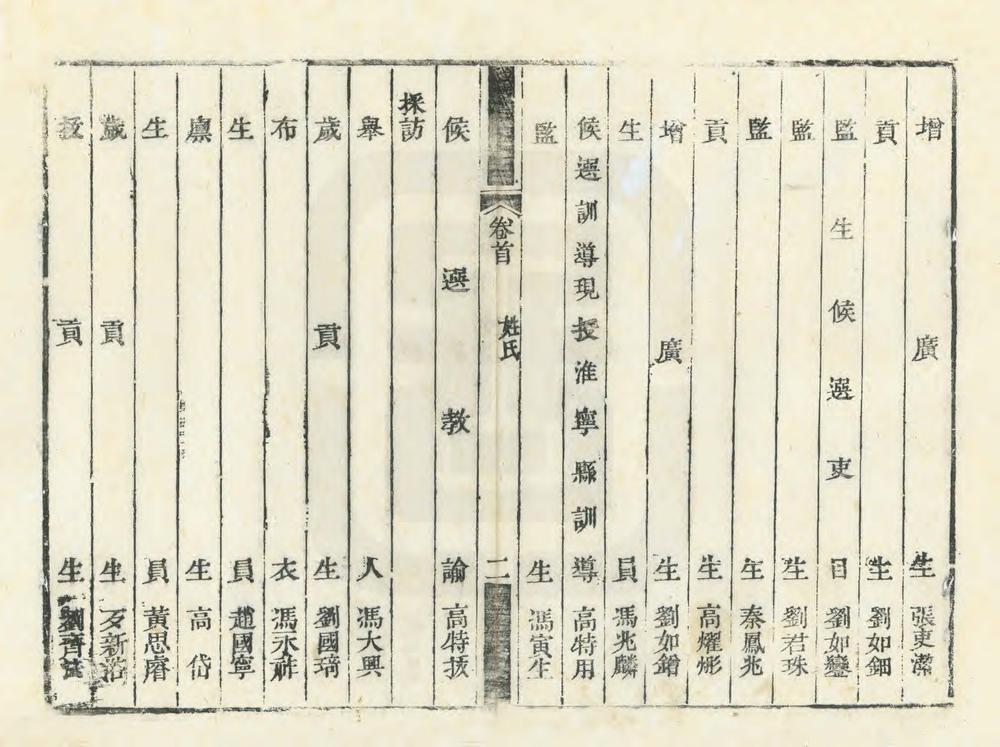 增廣生張吏潔
貢生劉如鈿
監生候選吏目劉如鑾
監生劉君珠
監生秦鳳兆
貢生高燿彤
增廣生劉如鐕
生員馮兆麟
候選訓導現授淮寧縣訓導高特用
監生馮寅生
卷首 姓氏 二
候選教諭高特拔
採訪
舉人馮大興
歲貢生劉國琦
布衣馮永祚
生員趙國寧
廩生高岱
生員黃思睿
歲貢生新治
拔貢生劉齊